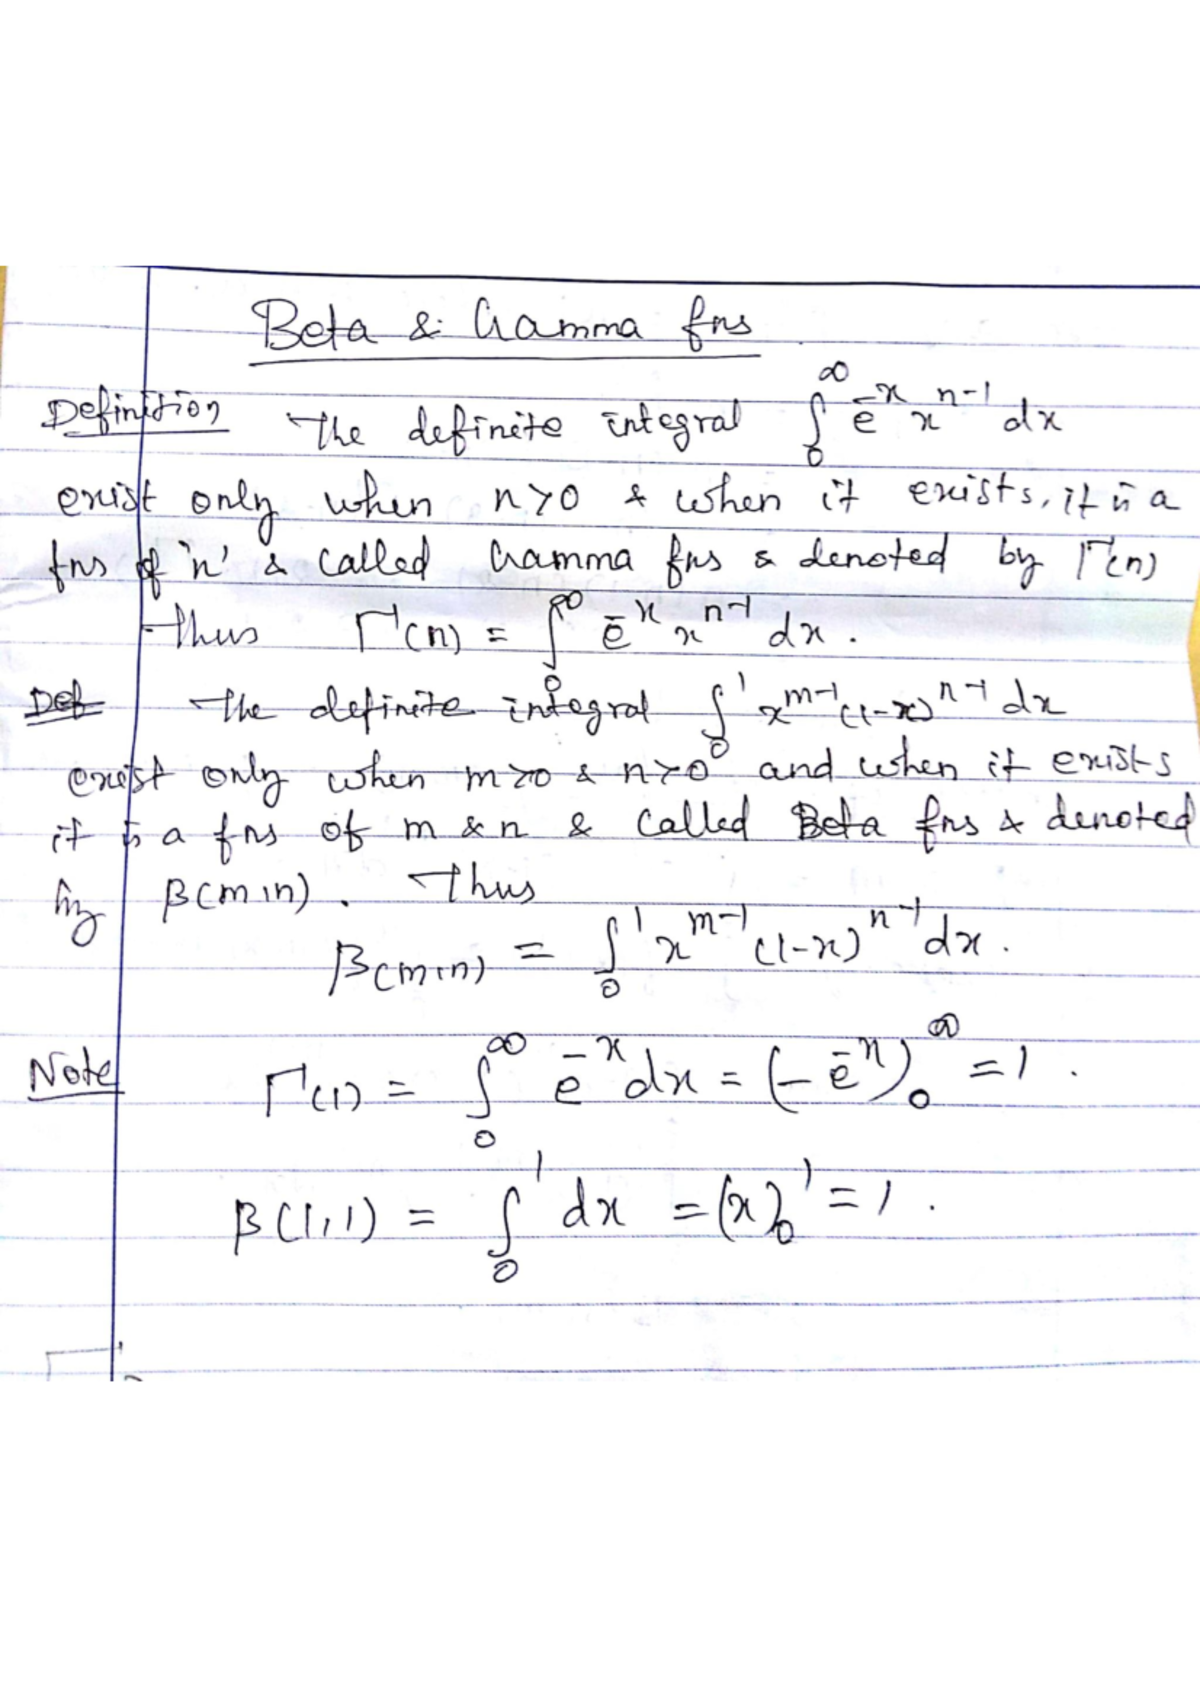 Beta & Gamma fns
Definition The definite integral ∫₀^∞ e^{-x} x^{n-1} dx
exist only when n>0 & when it exists, it is a
fns of 'n' & called Gamma fns & denoted by Γ(n)
Thus Γ(n) = ∫₀^∞ e^{-x} x^{n-1} dx.
Def The definite integral ∫₀^1 x^{m-1} (1-x)^{n-1} dx
exist only when m>0 & n>0 and when it exists
it is a fns of m & n & called Beta fns & denoted
by β(m,n). Thus
β(m,n) = ∫₀^1 x^{m-1} (1-x)^{n-1} dx.
Note Γ(1) = ∫₀^∞ e^{-x} dx = (-e^{-x})₀^∞ = 1.
β(1,1) = ∫₀^1 dx = (x)₀^1 = 1.